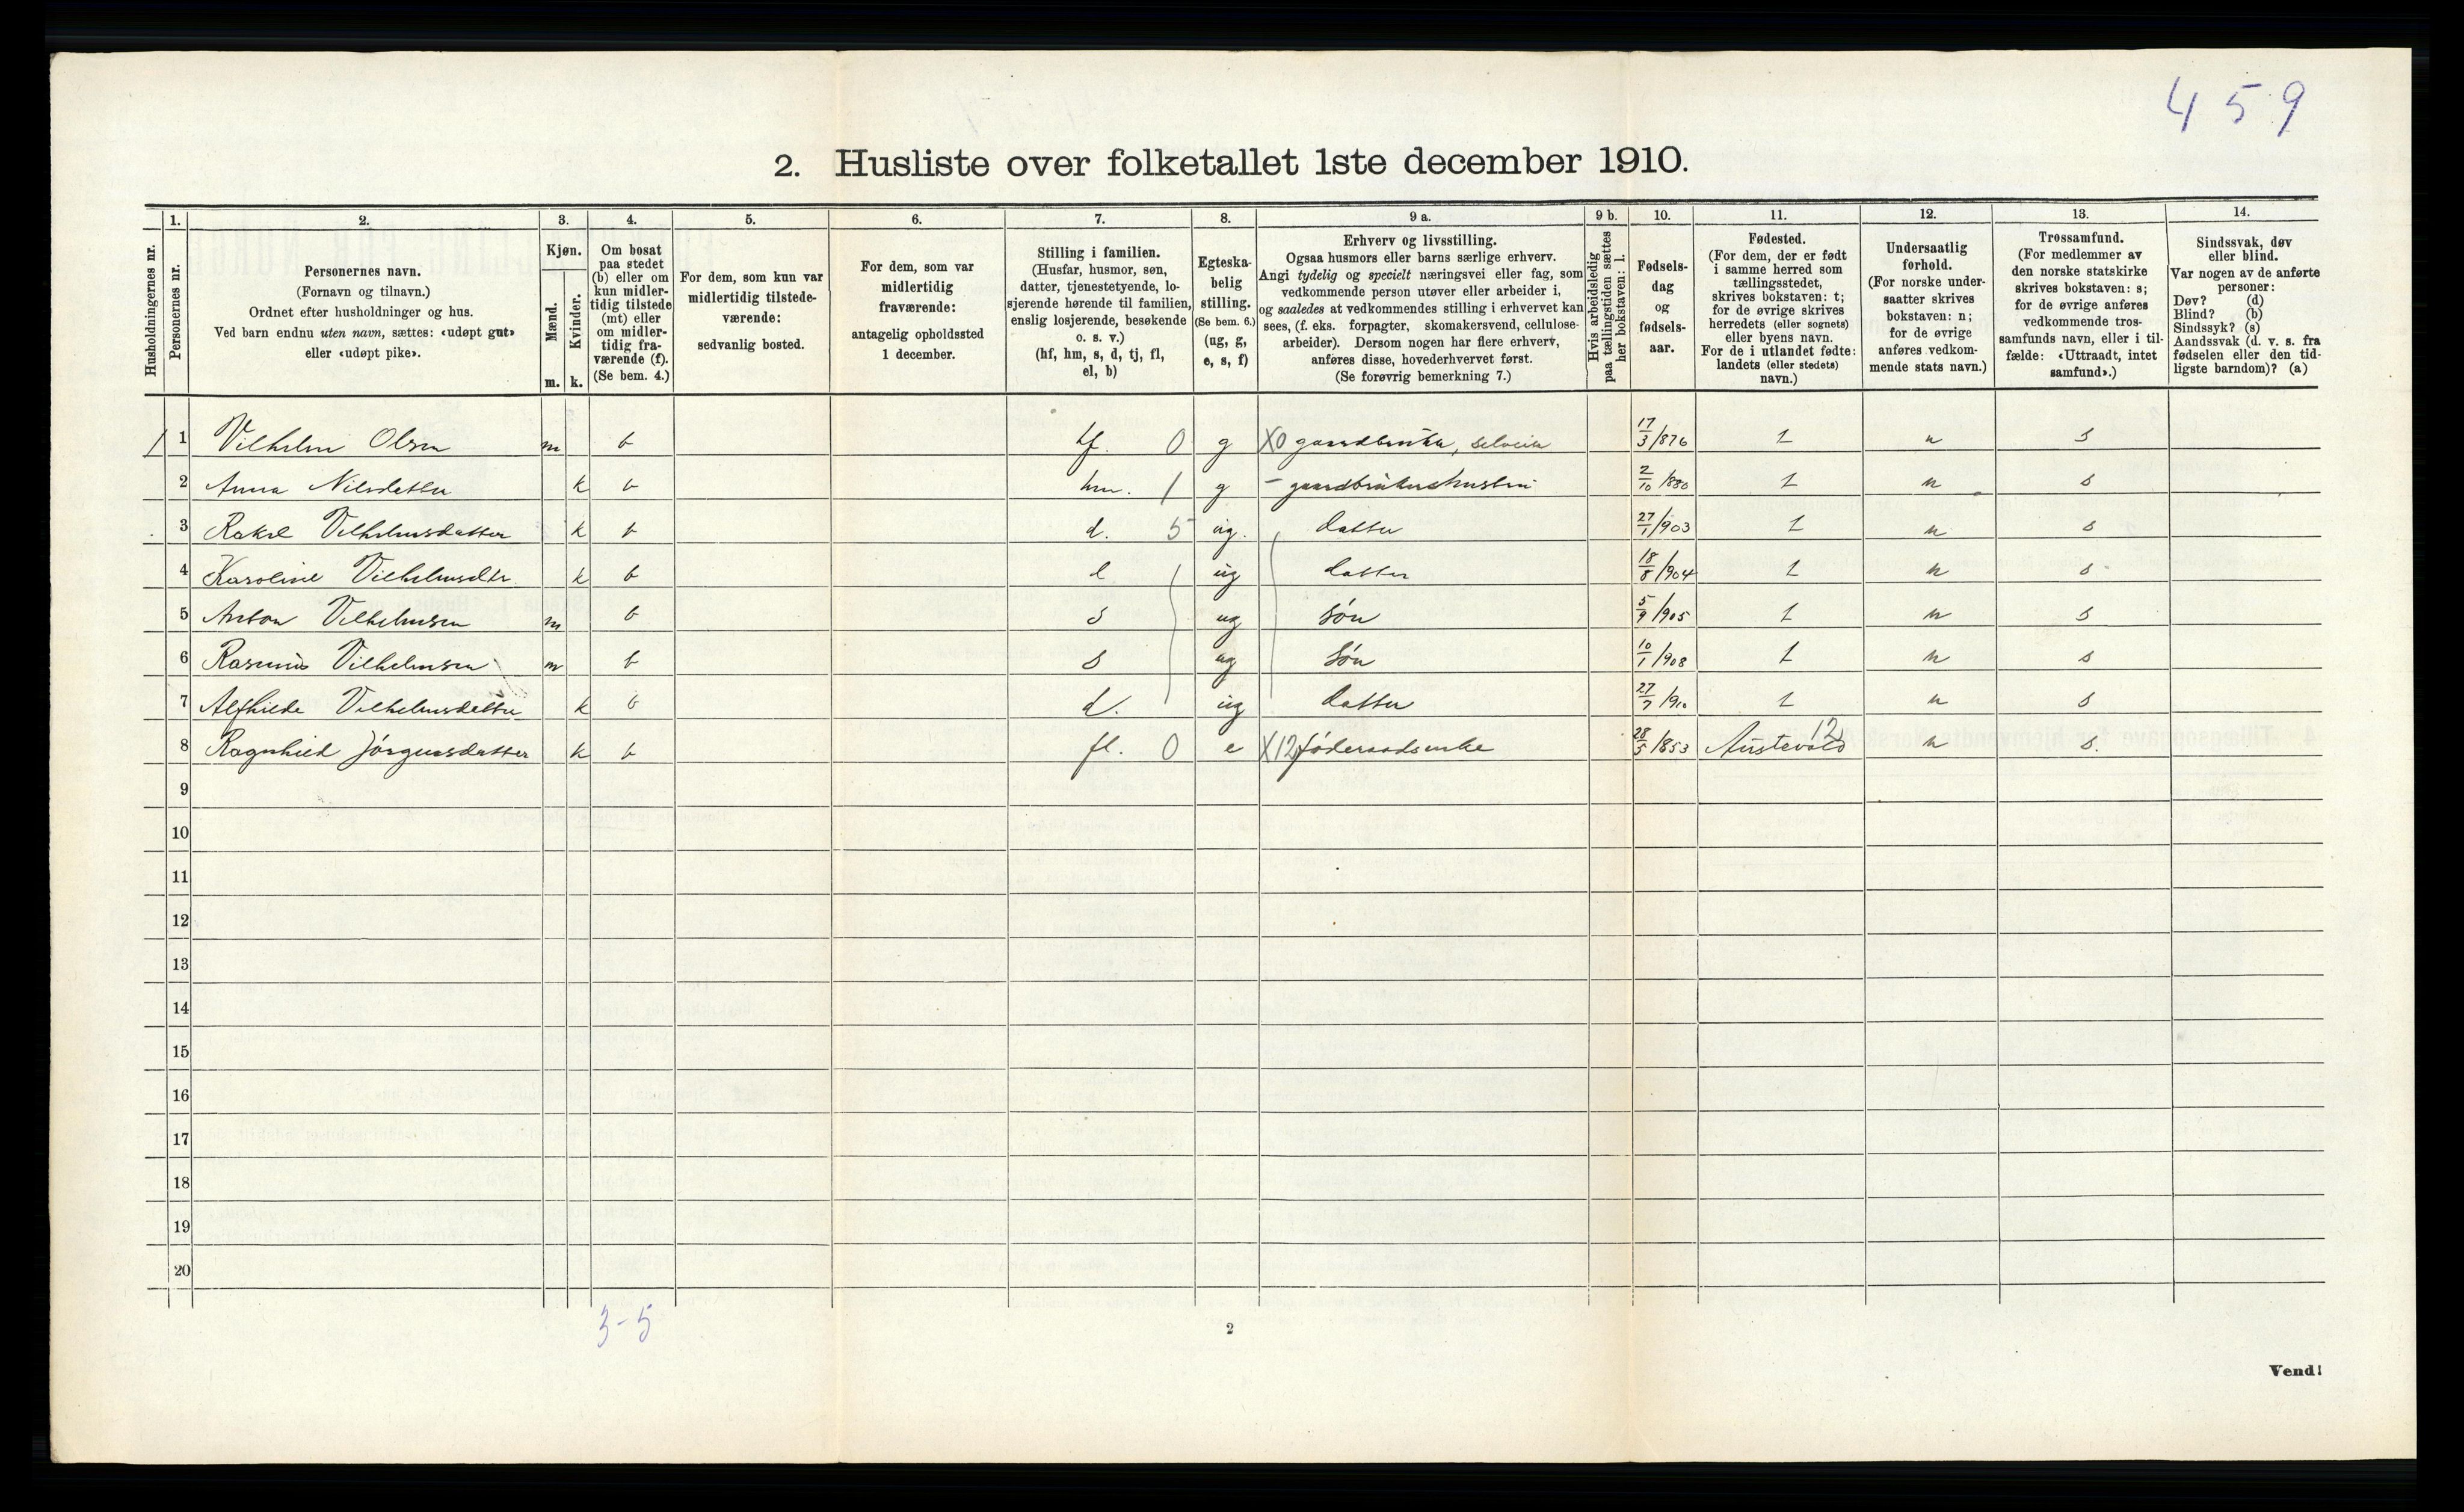 459
2. Husliste over folketallet 1ste december 1910.
Husholdningernes nr.
1.
Personernes nr.
2.
Personernes navn.
(Fornavn og tilnavn.)
Ordnet efter husholdninger og hus.
Ved barn endnu uten navn, sættes: «udøpt gut»
eller «udøpt pike».
3.
Kjøn.
Mænd.
Kvinder.
m. k.
4.
Om bosat
paa stedet
(b) eller om
kun midler-
tidig tilstede
(mt) eller
om midler-
tidig fra-
værende (f).
(Se bem. 4.)
5.
For dem, som kun var
midlertidig tilstede-
værende:
sedvanlig bosted.
6.
For dem, som var
midlertidig
fraværende:
antagelig opholdssted
1 december.
7.
Stilling i familien.
(Husfar, husmor, søn,
datter, tjenestetyende, lo-
sjerende hørende til familien,
enslig losjerende, besøkende
o. s. v.)
(hf, hm, s, d, tj, fl,
el, b)
8.
Egteska-
belig
stilling.
(Se bem. 6.)
(ug, g,
e, s, f)
9 a.
Erhverv og livsstilling.
Ogsaa husmors eller barns særlige erhverv.
Angi tydelig og specielt næringsvei eller fag, som
vedkommende person utøver eller arbeider i,
og saaledes at vedkommendes stilling i erhvervet kan
sees, (f. eks. forpagter, skomakersvend, cellulose-
arbeider). Dersom nogen har flere erhverv,
anføres disse, hovederhvervet først.
(Se forøvrig bemerkning 7.)
9 b.
Hvis arbeidsledig
paa tællingstiden sættes
her bokstaven: l.
10.
Fødsels-
dag
og
fødsels-
aar.
11.
Fødested.
(For dem, der er født
i samme herred som
tællingsstedet,
skrives bokstaven: t;
for de øvrige skrives
herredets (eller sognets)
eller byens navn.
For de i utlandet fødte:
landets (eller stedets)
navn.)
12.
Undersaatlig
forhold.
(For norske under-
saatter skrives
bokstaven: n;
for de øvrige
anføres vedkom-
mende stats navn.)
13.
Trossamfund.
(For medlemmer av
den norske statskirke
skrives bokstaven: s;
for de øvrige anføres
vedkommende tros-
samfunds navn, eller i til-
fælde: «Uttraadt, intet
samfund».)
14.
Sindssvak, døv
eller blind.
Var nogen av de anførte
personer:
Døv? (d)
Blind? (b)
Sindssyk? (s)
Aandssvak (d. v. s. fra
fødselen eller den tid-
ligste barndom)? (a)
1 1 Vilhelm Olsen m b hf. 0 g X0 gaardbruker, selveier 17/3/876 t n s
2 Anna Nilsdatter k b hm. 1 g - gaardbrukerhustru 2/10/880 t n s
3 Rakel Vilhelmsdatter k b d. 5 ug. datter 27/1/903 t n s
4 Karoline Vilhelmsdtr. k b d ug datter 18/8/904 t n s
5 Anton Vilhelmsen m b s ug søn 5/9/905 t n s
6 Rasmus Vilhelmsen m b s ug søn 10/1/908 t n s
7 Alfhilde Vilhelmsdatter k b d. ug datter 27/7/910 t n s
8 Ragnhild Jörgensdatter k b fl. 0 e X12 föderaadsenke 28/5/853 Austevold 12 n s.
9
10
11
12
13
14
15
16
17
18
19
20
3-5
2
Vend!